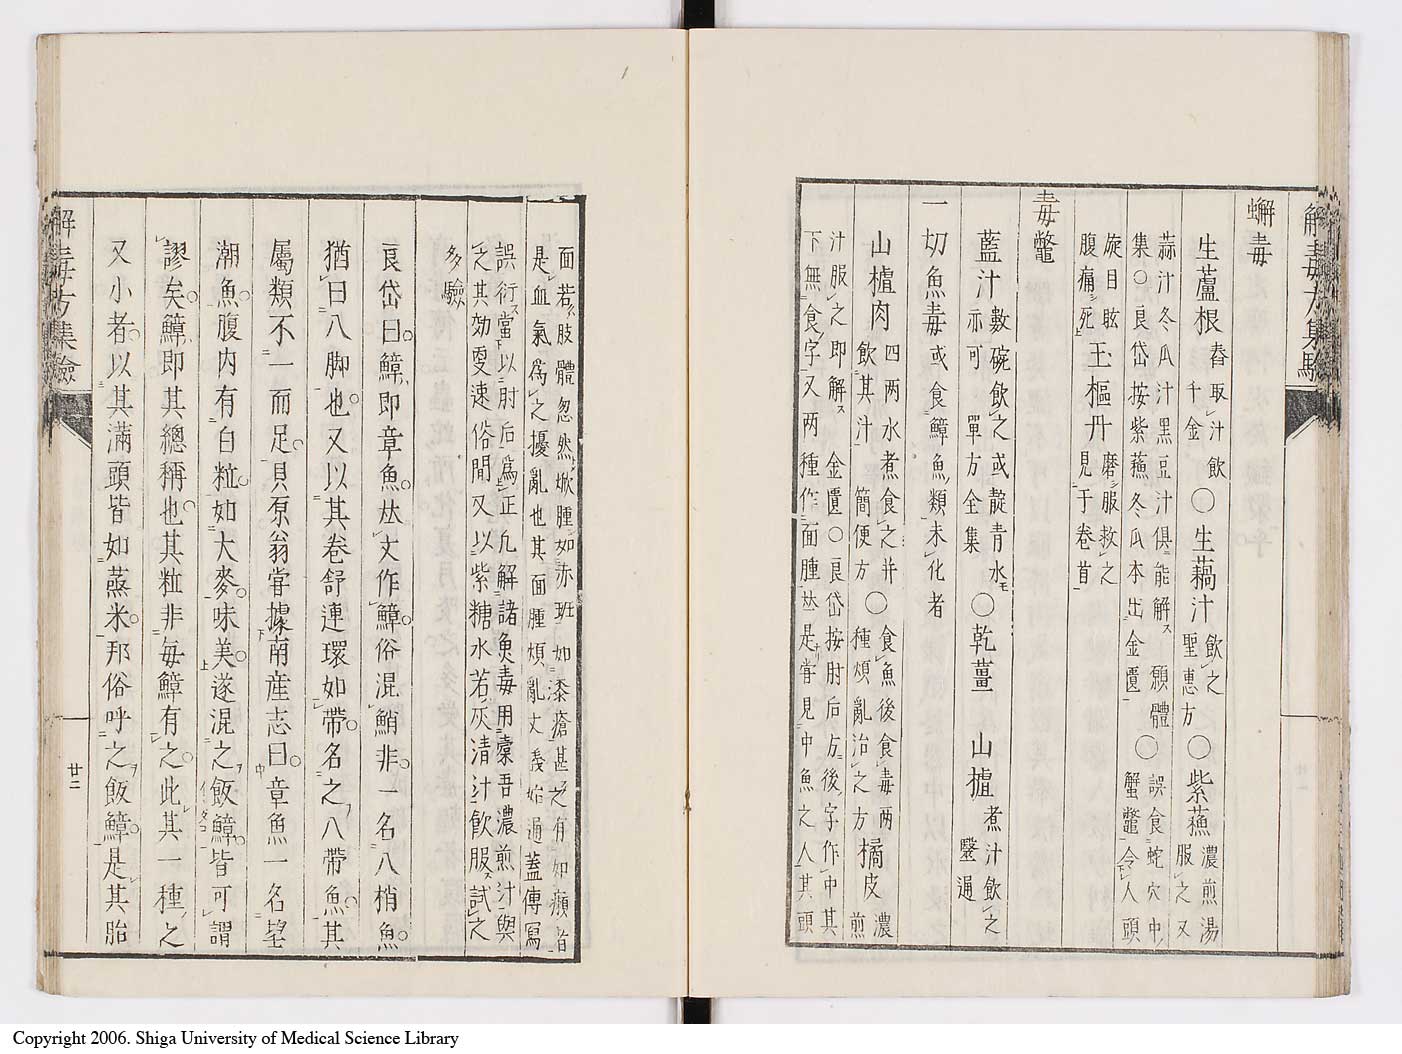 解毒方集驗
蠏毒
生蘆根 舂取汁飲 千金 ○生藕汁 飲之 聖惠方 ○紫蘓 濃煎湯 服之又
蒜汁冬瓜汁黑豆汁俱能解 頟體 ○ 誤食蛇穴中
集○良岱按紫蘓冬瓜本出金匱 蟹鼈令人頭
旋目眩 腹痛死 玉樞丹 磨服救之 見于卷首
毒鼈
藍汁 數碗飲之或靛青水 亦可 單方全集 ○乾薑 山樝 煮汁飲之 鑒遍
一切魚毒 或食鱆魚類未化者
山樝肉 四兩水煮食之并 飲其汁 簡便方 ○ 食魚後食毒兩 種煩亂治之方 橘皮 濃 煎
汁服之即解 金匱○良岱按肘后方後字作中其
下無食字又两種作面腫㕝是甞見中魚之人其頭
面若肢體忽然焮腫如赤班如漆瘡甚之有如癩者
是血氣爲之擾亂也其面腫煩亂文義始通蓋傳寫
誤衍當以肘后爲正凢解諸魚毒用橐吾濃煎汁與
之其効雯速俗間又以紫糖水若灰清汁飲服試之
多驗
良岱曰鱆即章魚㕝文作鱆俗混鮹非一名八梢魚
猶曰八脚也又以其卷舒連環如帶名之八帶魚其
屬類不一而足貝原翁甞據南産志曰章魚一名望
潮魚腹内有白粒如大麥味美遂混之飯鱆皆可謂
謬矣鱆即其總稱也其粒非每鱆有之此其一種之
又小者以其滿頭皆如蒸米邦俗呼之飯鱆是其胎
解毒方集驗
廿二
Copyright 2006. Shiga University of Medical Science Library